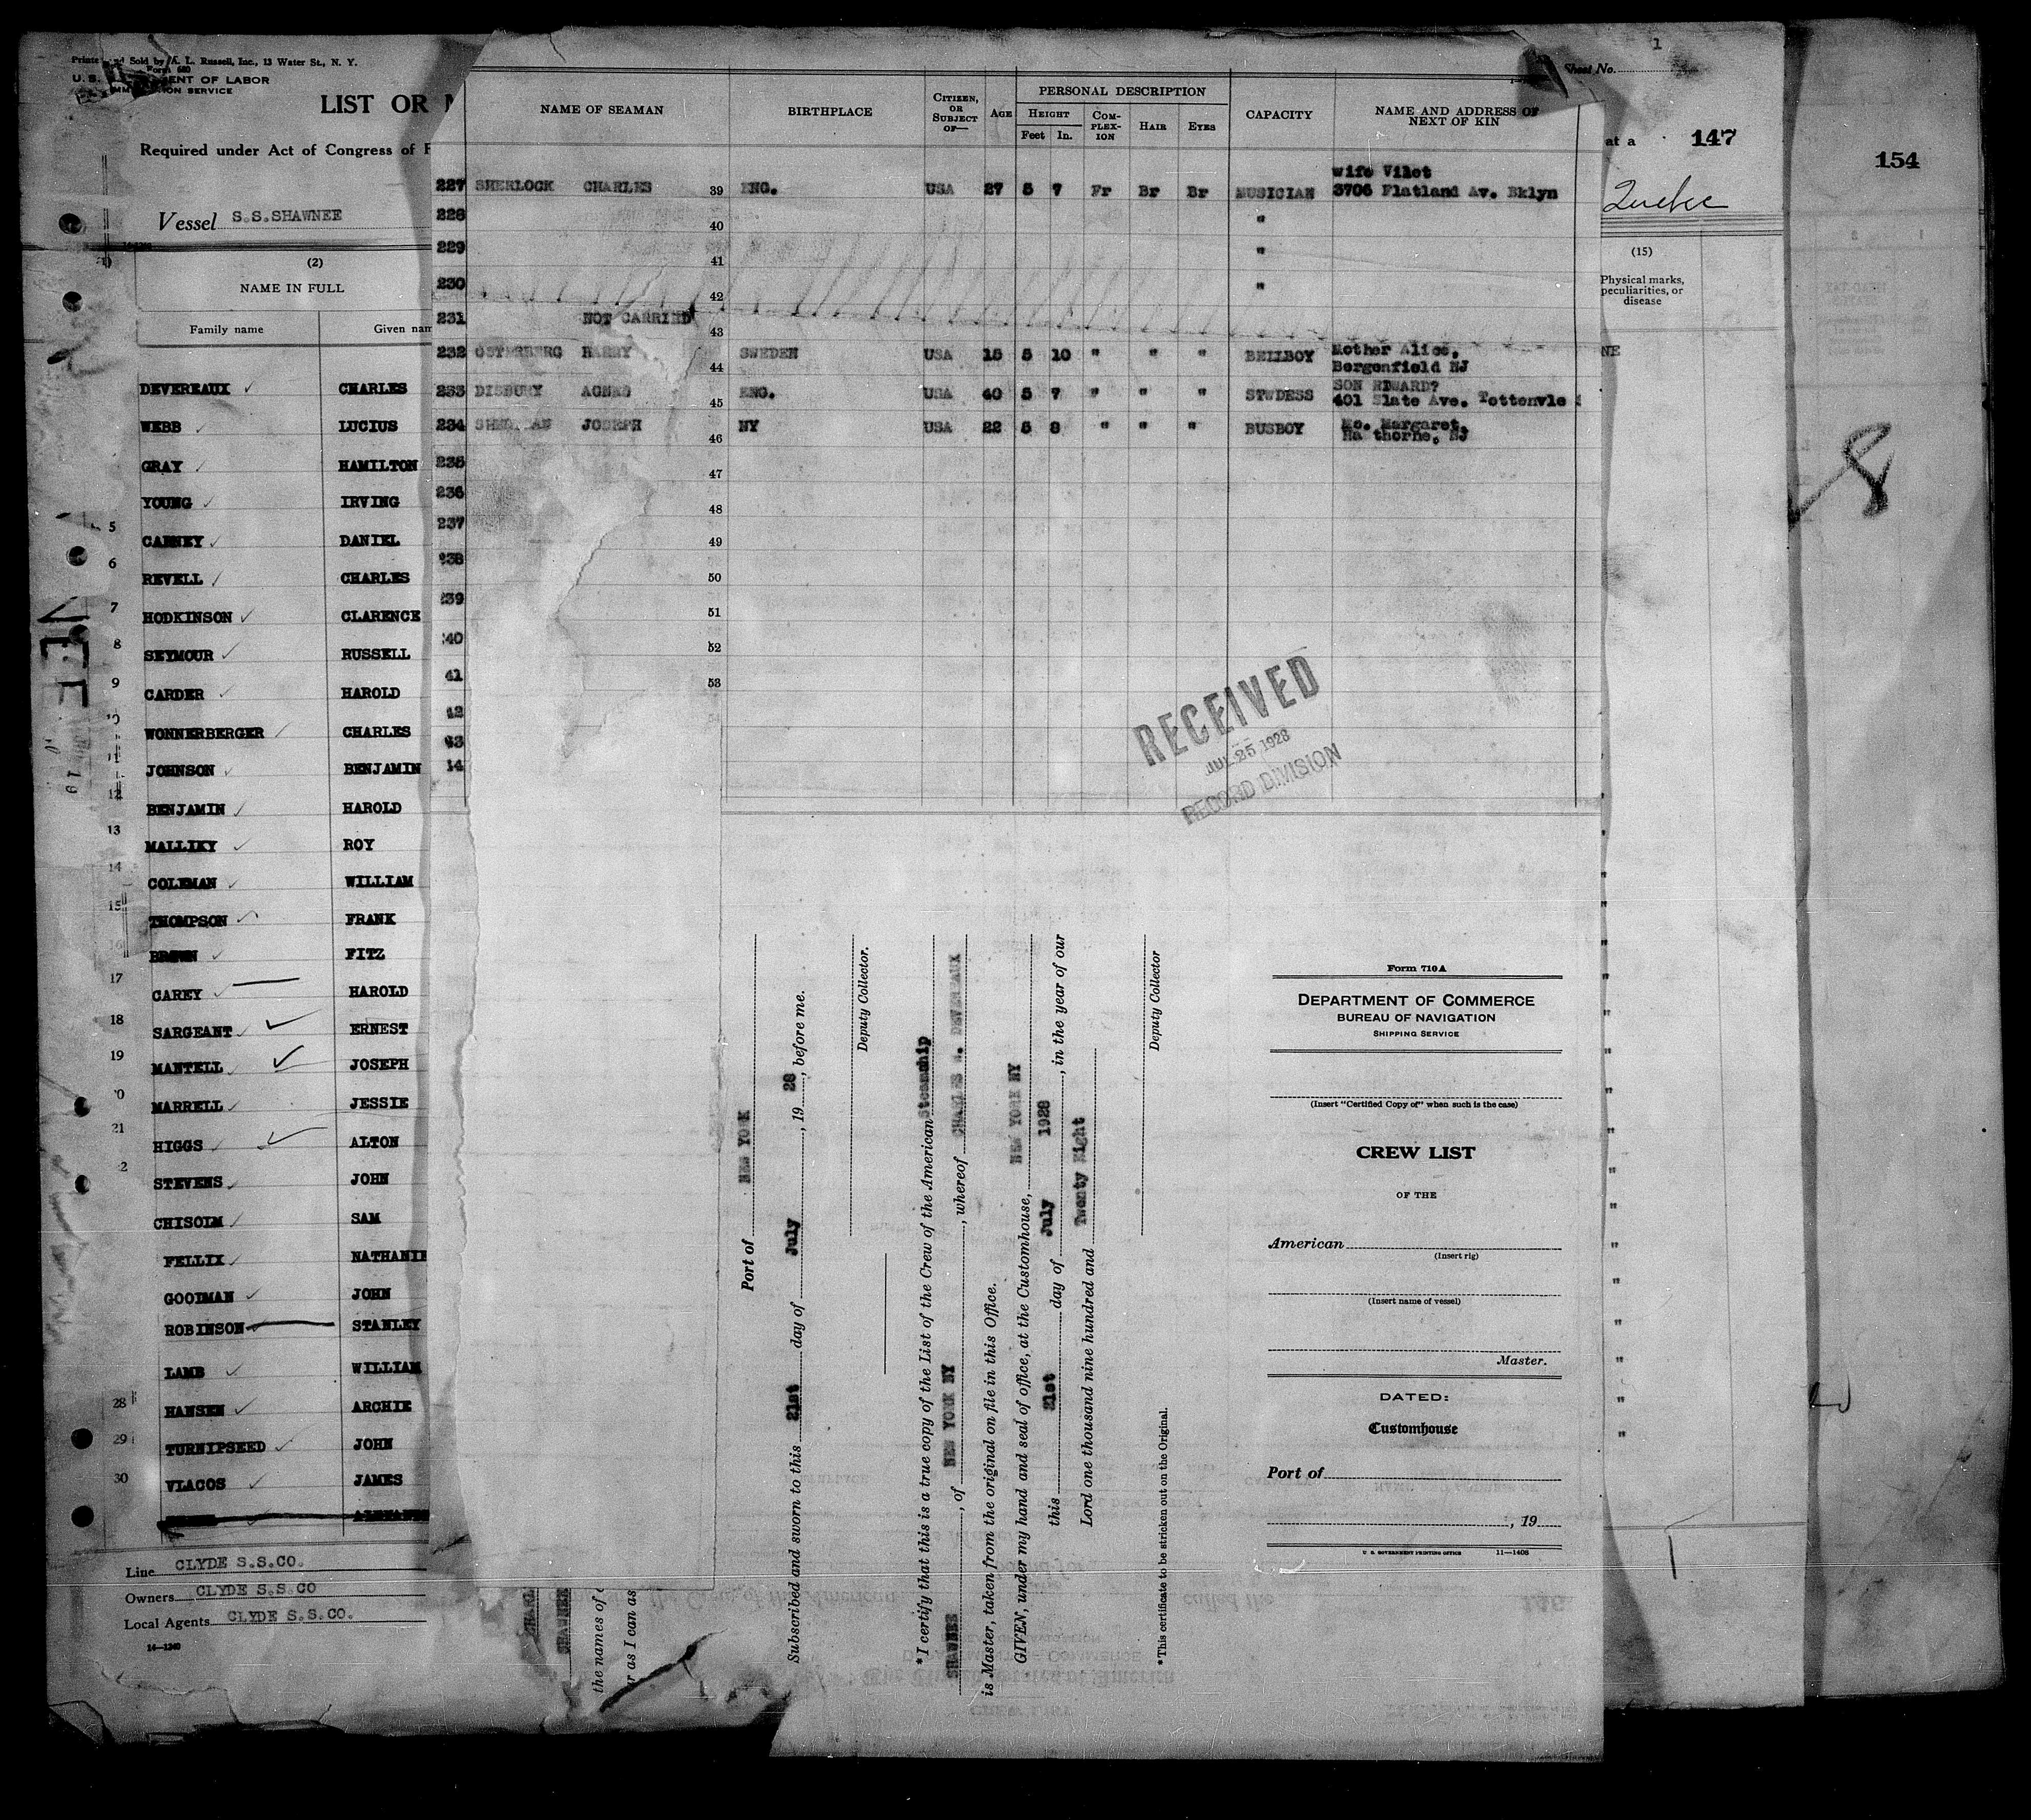 Sold by A. L. Russell, Inc., 13 Water St., N. Y.
Form 680
U.S. OF LABOR
SERVICE
LIST OR
Required under Act of Congress of
Vessel S.S.SHAWNEE
(2)
NAME IN FULL
Family name Given
DEVEREAUX CHARLES
WEBB LUCIUS
GRAY HAMILTON
YOUNG IRVING
5 CARNEY DANIEL
6 REVELL CHARLES
7 HODKINSON CLARENCE
8 SEYMOUR RUSSELL
9 CARDER HAROLD
WONNERBERGER CHARLES
JOHNSON BENJAMIN
12 BENJAMIN HAROLD
13 MALLIKY ROY
14 COLEMAN WILLIAM
15 THOMPSON FRANK
16 BROWN FITZ
17 CAREY HAROLD
18 SARGEANT ERNEST
19 MANTELL JOSEPH
MARRELL JESSIE
21 HIGGS ALTON
STEVENS JOHN
CHISOLM SAM
FELLIX NATHANIE
GOODMAN JOHN
ROBINSON STANLEY
LAMB WILLIAM
28 HANSEN ARCHIE
29 TURNIPSEED JOHN
30 VLACOS JAMES
Line CLYDE S.S.CO.
Owners CLYDE S.S.CO
Local Agents CLYDE S.S.CO.
14—1240
NAME OF SEAMAN BIRTHPLACE CITIZEN, OR SUBJECT OF— AGE PERSONAL DESCRIPTION CAPACITY NAME AND ADDRESS OF NEXT OF KIN
HEIGHT COMPLEXION HAIR EYES
Feet In.
wife Vilet
227 SHERLOCK CHARLES 39 ENG. USA 27 5 7 Fr Br Br MUSICIAN 3706 Flatland Av. Bklyn
228 40 "
229 41 "
230 42 "
231 NOT CARRIED 43
232 OSTERBERG HARRY 44 SWEDEN USA 15 5 10 " " " BELLBOY Mother Alice,
Bergenfield NJ
233 DISBURY AGNES 45 ENG. USA 40 5 7 " " " STWDESS SON EDWARD?
401 Slate Ave. Tottenvle
234 JOSEPH 46 NY USA 22 5 8 " " " BUSBOY Mo. Margaret,
Ha thorne, NJ
235 47
236 48
237 49
238 50
239 51
40 52
41 53
42
43
14
RECEIVED
JUL 25 1928
RECORD DIVISION
Port of NEW YORK
Subscribed and sworn to this 21st day of July, 19 28, before me.
Deputy Collector.
*I certify that this is a true copy of the List of the Crew of the American Steamship
SHAWNEE, of NEW YORK NY, whereof CHARLES W. DEVEREAUX
is Master, taken from the original on file in this Office.
GIVEN, under my hand and seal of office, at the Customhouse, NEW YORK NY
this 21st day of July 1928, in the year of our
Lord one thousand nine hundred and Twenty Eight
Deputy Collector
*This certificate to be stricken out on the Original.
SHAWNEE
the names of
r as I can as
Form 710A
DEPARTMENT OF COMMERCE
BUREAU OF NAVIGATION
SHIPPING SERVICE
(Insert "Certified Copy of" when such is the case)
CREW LIST
OF THE
American
(Insert rig)
(Insert name of vessel)
Master.
DATED:
Customhouse
Port of
, 19
U. S. GOVERNMENT PRINTING OFFICE 11—1408
1
Sheet No.
at a 147
Quebec
(15)
Physical marks, peculiarities, or disease
NE
154
8